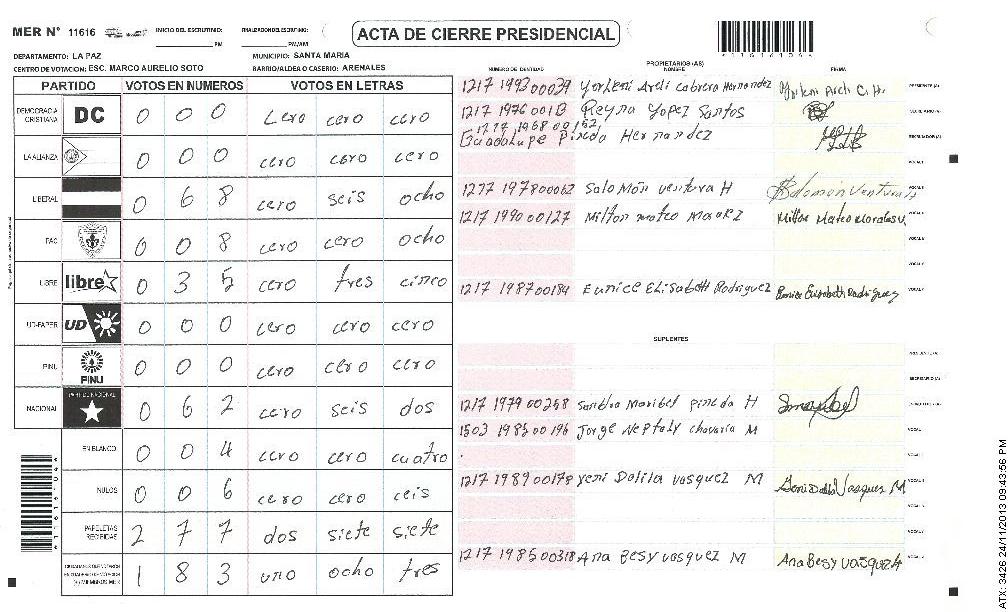 MER Nº 11616
INICIO DEL ESCRUTINIO: PM
FINALIZACION ESCRUTINIO: PM/AM
ACTA DE CIERRE PRESIDENCIAL
DEPARTAMENTO: LA PAZ
MUNICIPIO: SANTA MARIA
CENTRO DE VOTACION: ESC. MARCO AURELIO SOTO
BARRIO/ALDEA O CASERIO: ARENALES
PARTIDO VOTOS EN NUMEROS VOTOS EN LETRAS
DEMOCRACIA CRISTIANA DC 0 0 0 cero cero cero
LA ALIANZA 0 0 0 cero cero cero
LIBERAL 0 6 8 cero seis ocho
PAC 0 0 8 cero cero ocho
LIBRE libre 0 3 5 cero tres cinco
UD-FAPER UD 0 0 0 cero cero cero
PINU PINU 0 0 0 cero cero cero
NACIONAL 0 6 2 cero seis dos
EN BLANCO 0 0 4 cero cero cuatro
NULOS 0 0 6 cero cero ceis
PAPELETAS RECIBIDAS 2 7 7 dos siete siete
1 8 3 uno ocho tres
NUMERO DE IDENTIDAD PROPIETARIOS (AS) NOMBRE FIRMA
1217 1993 00039 Yorleni Arli Cabrera Hernandez PRESIDENTE (A)
1217 1976 00113 Reyna Lopez Santos SECRETARIO (A)
1217 1968 00152
Guadalupe Pineda Hernandez ESCRUTADOR (A)
VOCAL I
1217 1978 00062 Salomón ventura H Salomon Ventura H
1217 1990 00127 Milton mateo Milton Mateo Morales
1217 1987 00184 Eunice Elisabeth Rodriguez Eunice Elisabeth Rodriguez
SUPLENTES
PRESIDENTE (A)
SECRETARIO (A)
1217 1979 00258 Sandra Maribel pineda H
1503 1985 00196 Jorge Neptaly chavaria M
1217 1989 00178 yeni Dalila vasquez M Yeni Dalila Vasquez M
1217 1985 00318 Ana Besy vasquez M Ana Besy vasquez M
ATX: 3426 24/11/2013 09:43:56 PM